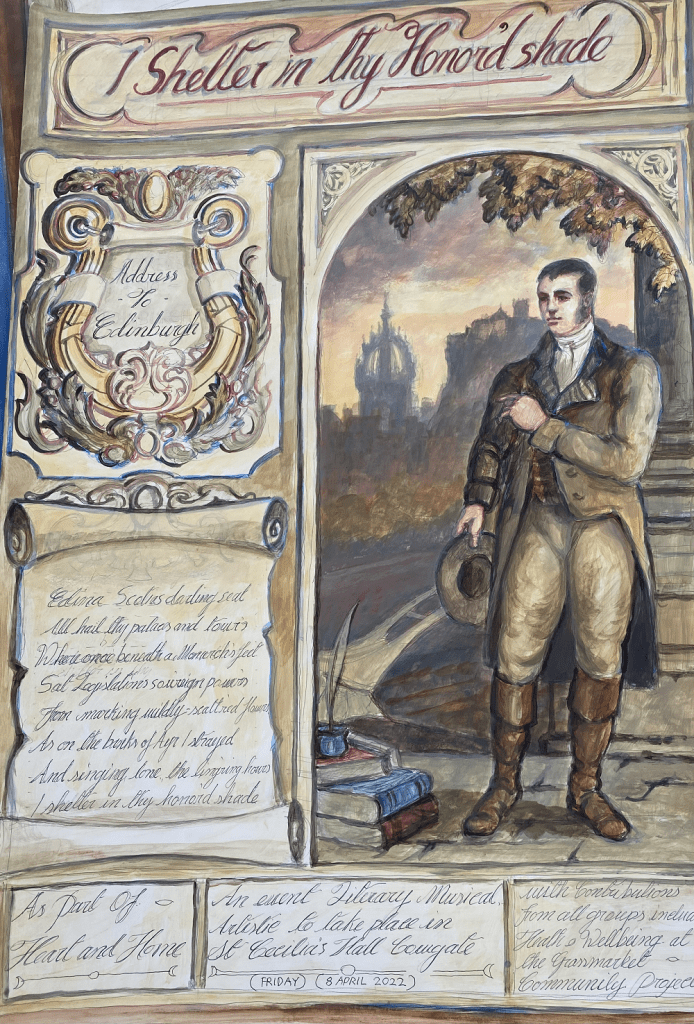 I Shelter in thy Honor'd shade
Address
- To -
Edinburgh
Edina Scotias darling seat
All hail thy palaces and tow'rs
Where once beneath a Monarch's feet
Sat Legislation's sovereign pow'rs
From marking wildly-scatt'red flow'rs
As on the banks of Ayr I strayed
And singing lone, the lingring hours
I shelter in thy honord shade
As Part Of
Heart and Home
An event Literary Musical
Artistic to take place in
St Cecilia's Hall Cowgate
(FRIDAY) (8 APRIL 2022)
with Contributions
from all groups inclu
Health & Wellbeing at
the Grassmarket
Community Project